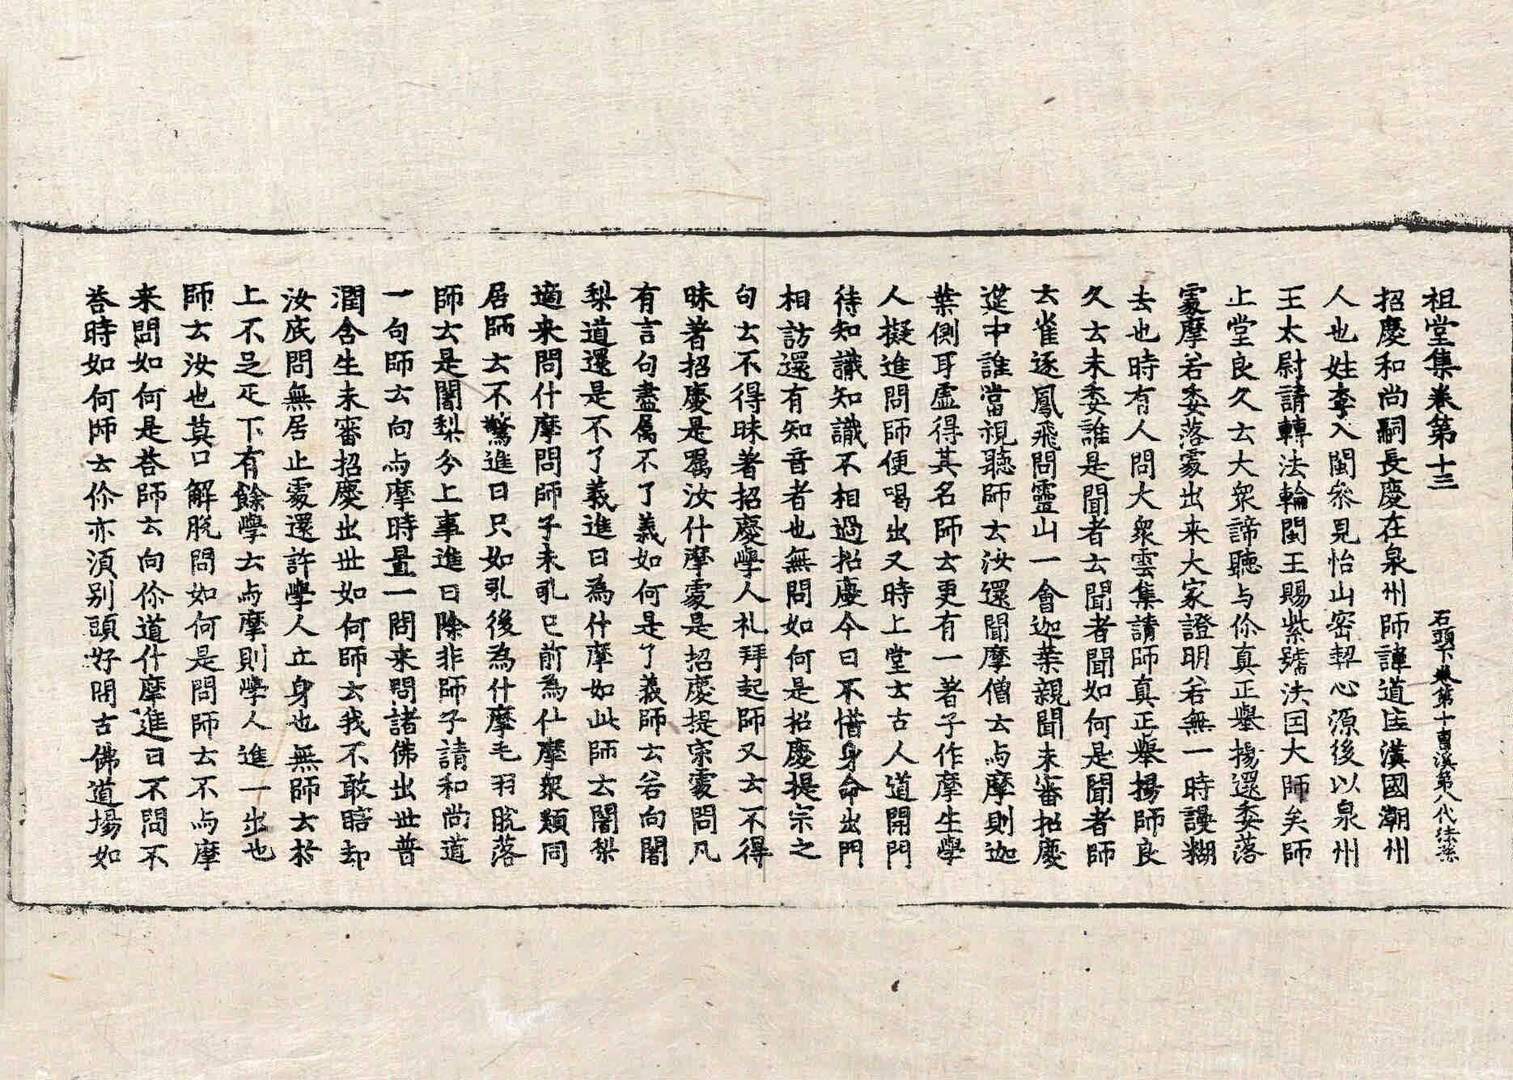 祖堂集卷第十三　石頭下卷第十曹溪第八代法孫
招慶和尚嗣長慶在泉州師諱道匡漢國潮州
人也姓李入閩叅見怡山密契心源後以泉州
王太尉請轉法輪閩王賜紫號法因大師矣師
上堂良久云大衆諦聽与你真正舉揚還委落
處摩若委落處出来大家證明若無一時謾糊
去也時有人問大衆雲集請師真正舉揚師良
久云未委誰是聞者云聞者聞如何是聞者師
云雀逐鳳飛問靈山一會迦葉親聞未審招慶
筵中誰當視聽師云汝還聞摩僧云与摩則迦
葉側耳虛得其名師云更有一著子作摩生學
人擬進問師便喝出又時上堂云古人道開門
待知識知識不相過招慶今日不惜身命出門
相訪還有知音者也無問如何是招慶提宗之
句云不得昧著招慶學人礼拜起師又云不得
昧著招慶是囑汝什摩處是招慶提宗處問凡
有言句盡属不了義如何是了義師云若向闍
梨道還是不了義進曰為什摩如此師云闍梨
適来問什摩問師子未吼已前為什摩衆類同
居師云不驚進曰只如吼後為什摩毛羽脫落
師云是闍梨分上事進曰除非師子請和尚道
一句師云向与摩時置一問来問諸佛出世普
潤含生未審招慶出世如何師云我不敢瞎却
汝底問無居止處還許學人立身也無師云於
上不足疋下有餘學云与摩則學人進一步也
師云汝也莫口解脫問如何是問師云不与摩
来問如何是荅師云向你道什摩進曰不問不
荅時如何師云你亦湏别頭好問古佛道場如